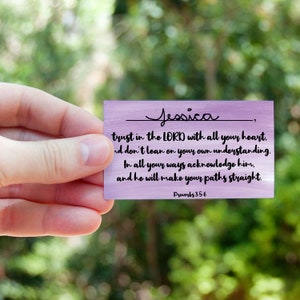 Jessica,
trust in the LORD with all your heart,
and don't lean on your own understanding.
In all your ways acknowledge him,
and he will make your paths straight.
Proverbs 3:5-6